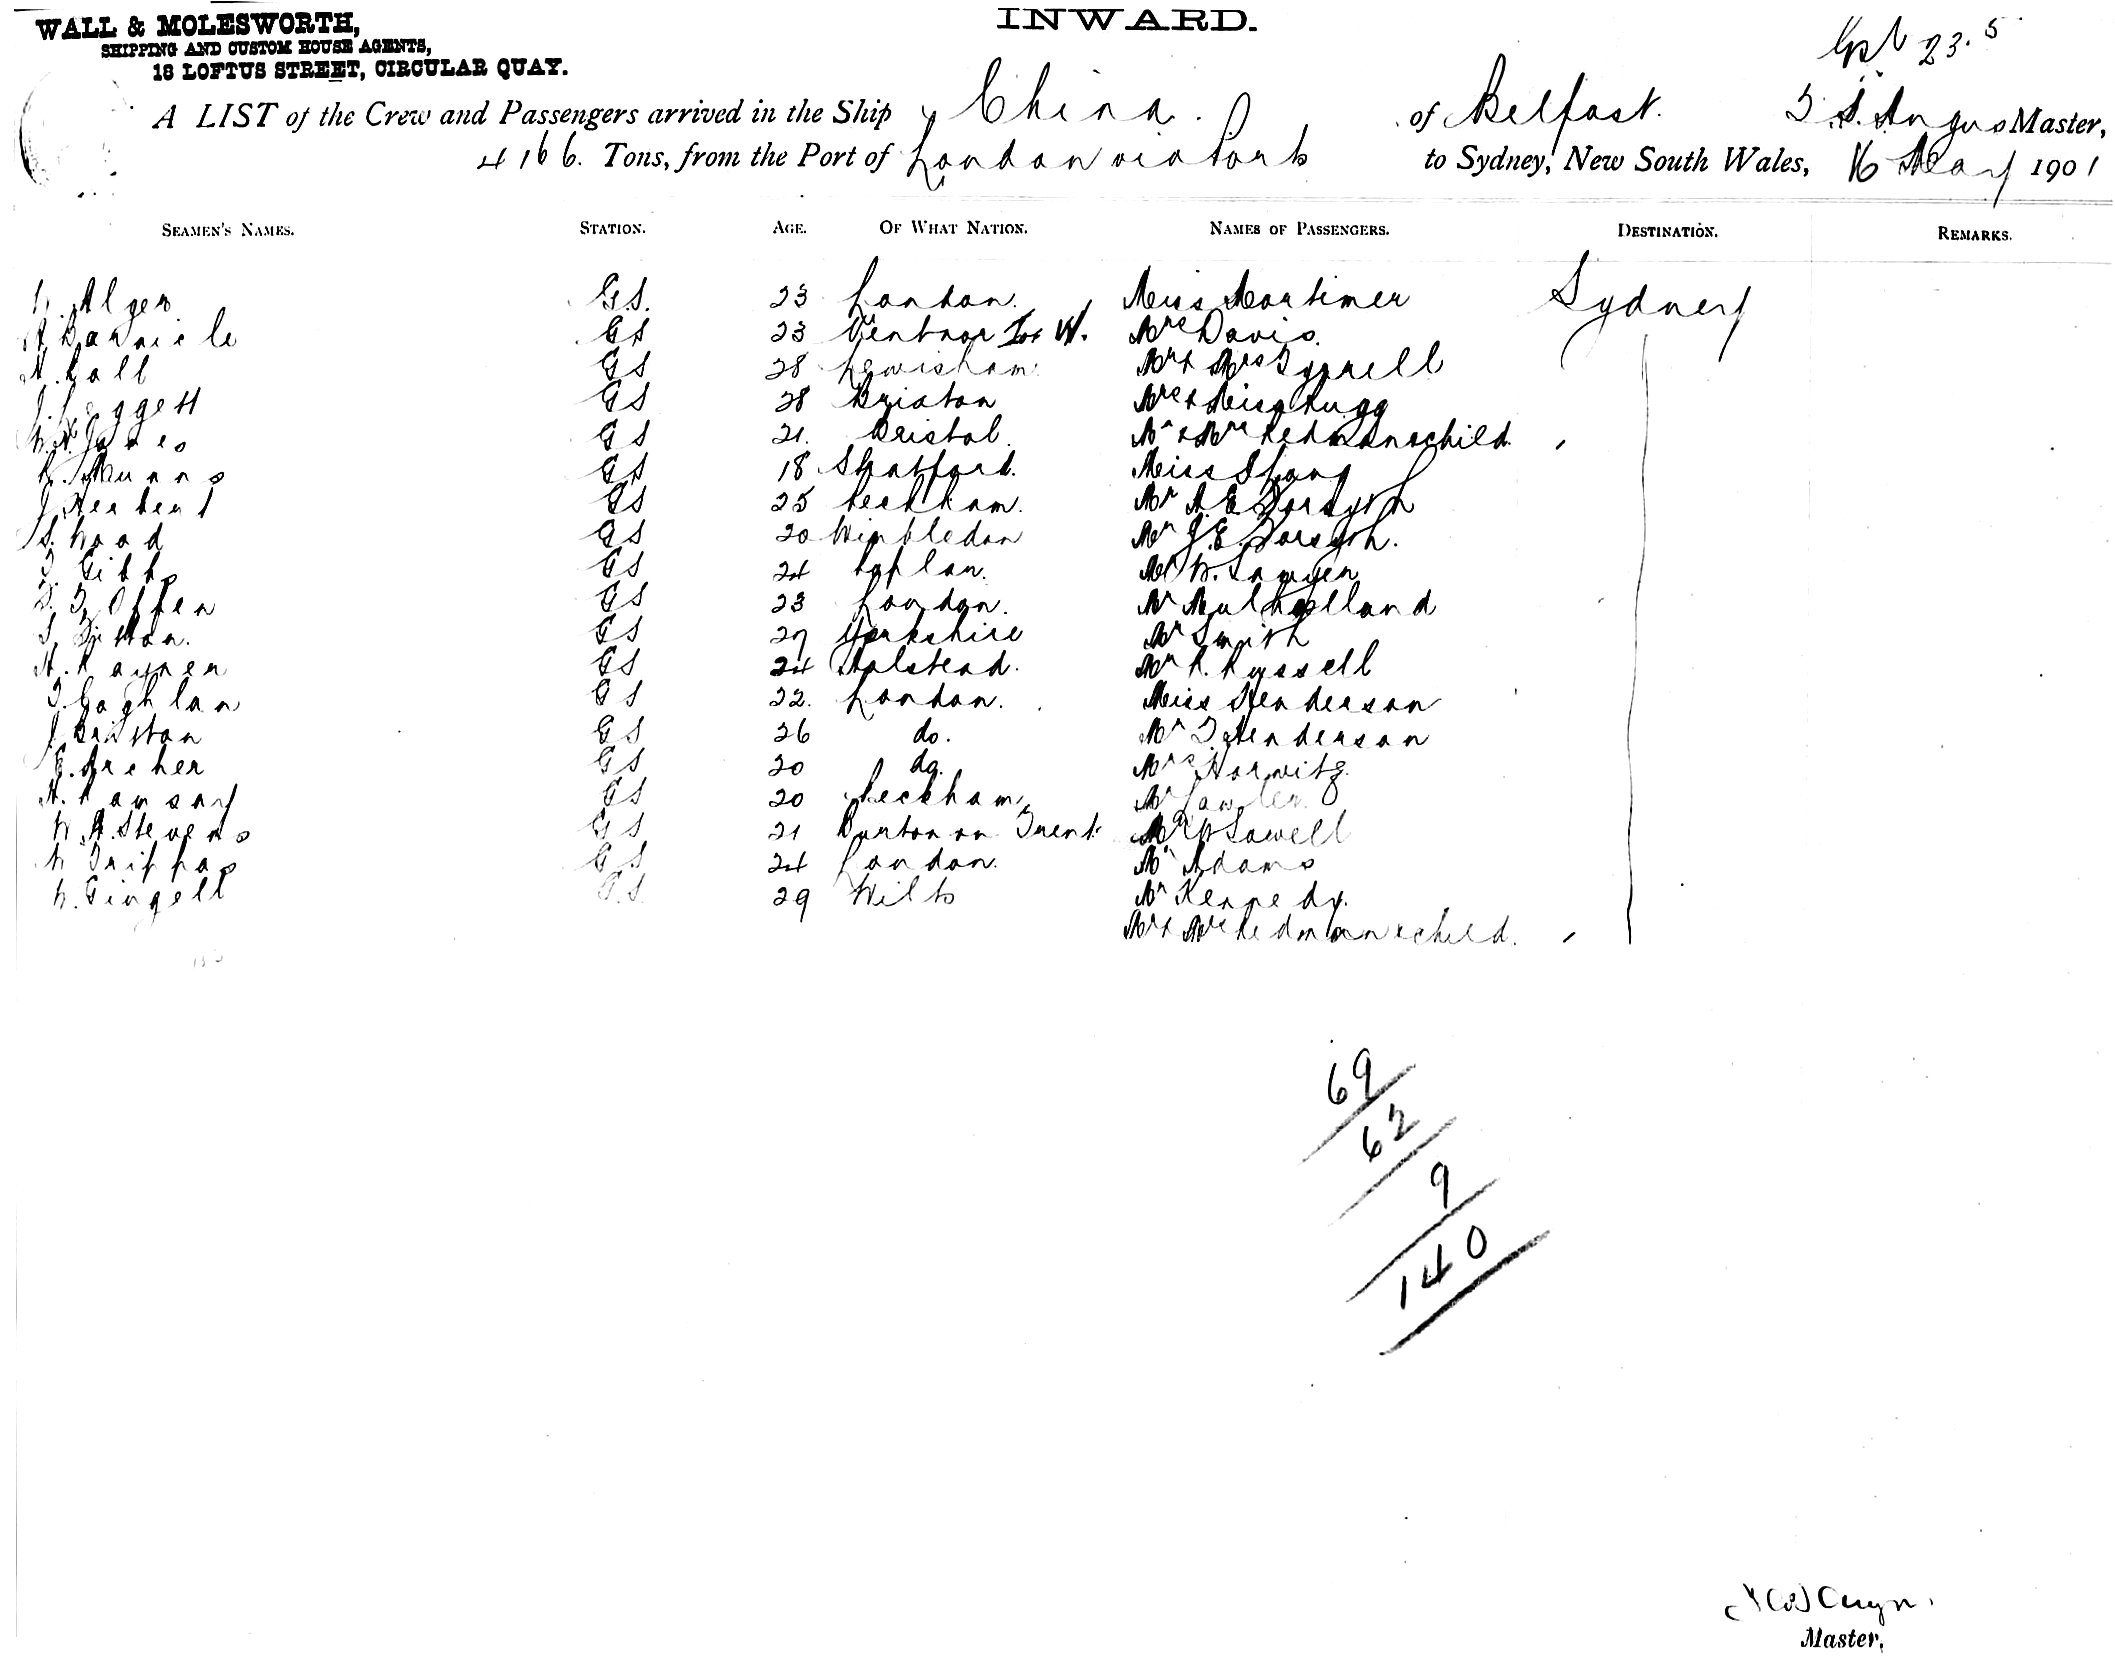 INWARD.
WALL & MOLESWORTH,
SHIPPING AND CUSTOM HOUSE AGENTS,
18 LOFTUS STREET, CIRCULAR QUAY.
23.5
A LIST of the Crew and Passengers arrived in the Ship China. of Belfast. T S. Angus Master,
4166. Tons, from the Port of London via Ports to Sydney, New South Wales, 16 May 1901
SEAMEN'S NAMES. STATION. AGE. OF WHAT NATION. NAMES OF PASSENGERS. DESTINATION. REMARKS.
Alger G.S. 23 London. Miss Mortimer Sydney
Barnicle GS 23 Ventnor I of W. Mrs Davis.
GS 28 Lewisham. Mr & Mrs Tyrrell
Leggett GS 28 Brixton Mrs & Miss Rugg
Jones GS 21. Bristol. Mr & Mrs Redman & child.
Munns GS 18 Stratford. Miss
J Herbert GS 25 Peckham. Mr A. E. Forsyth
S. Wood GS 20 Wimbledon Mr J. E. Forsyth.
T. Gibbs GS 24 Poplar. W. Sawyer
Offen GS 23 London. Mr Mulholland
GS 27 Yorkshire Mr Smith
H. Rayner GS 24 Halstead. Mr R. Russell
T. Coghlan GS 22. London. Miss Henderson
J Britton GS 26 do. Mr T. Henderson
E. Archer GS 20 do. Mrs Horwitz.
H. Ramsay GS 20 Peckham Mr Lawler.
W. A. Stevens GS 21 Burton on Trent Sowell
W GS 24 London. Mr Adams
W. Gingell G.S. 29 Wilts Mr Kennedy.
Mr & Mrs Redman & child.
69
62
9
140
Master,